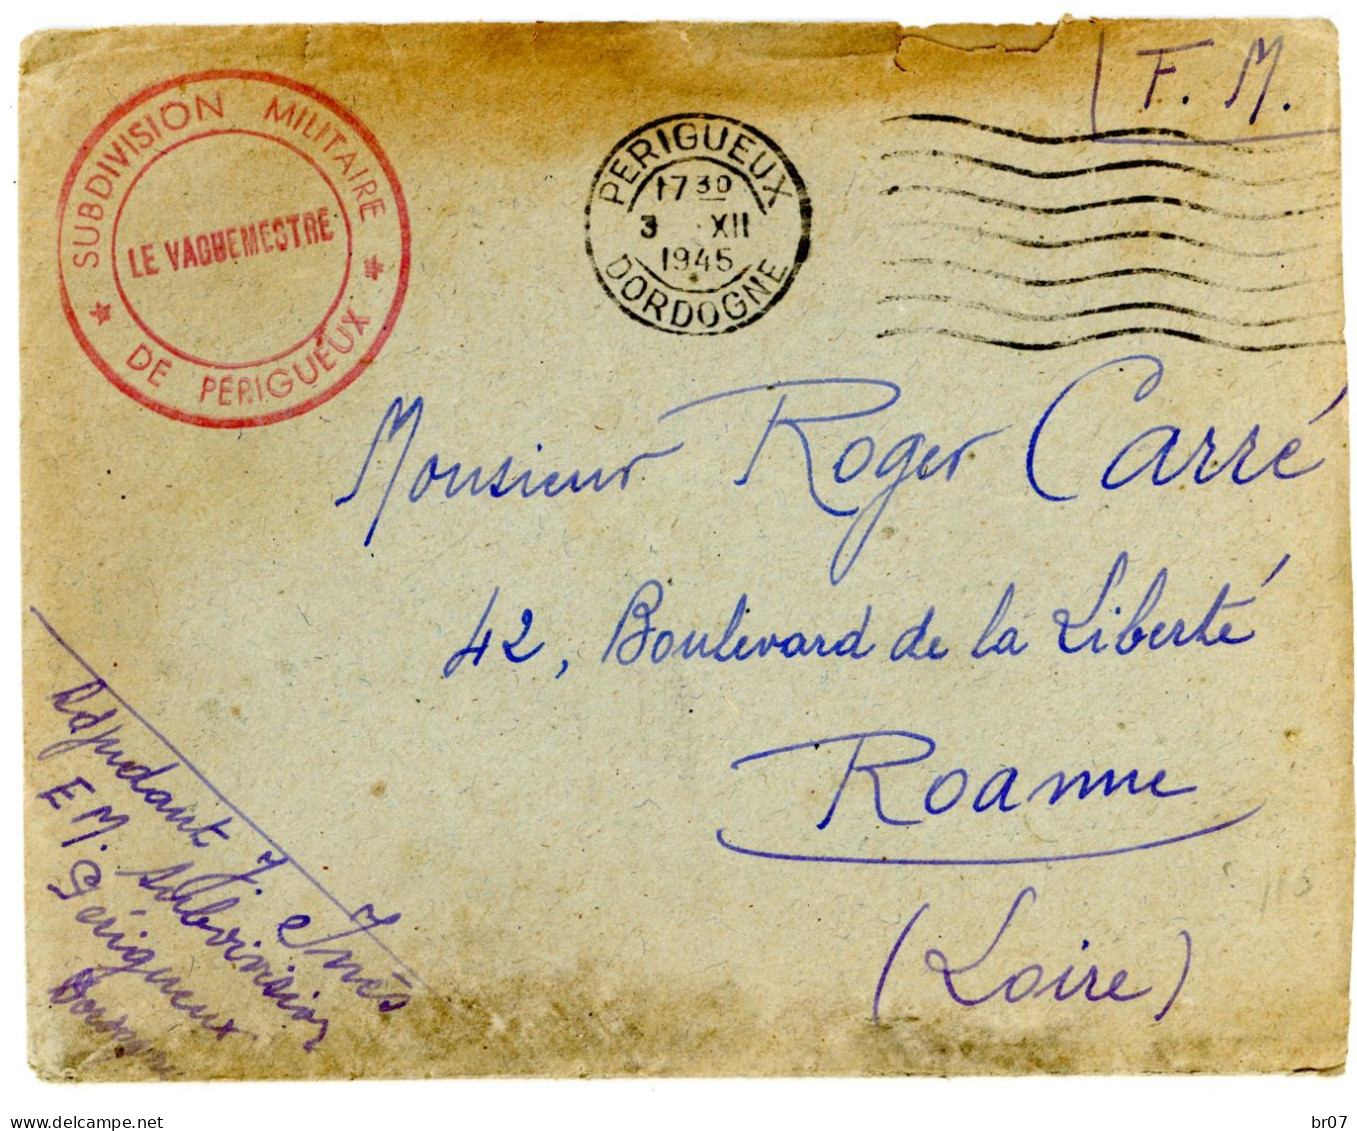 F. M.
SUBDIVISION MILITAIRE
DE PÉRIGUEUX
LE VAGUEMESTRE
PERIGUEUX
17 30
3 XII
1945
DORDOGNE
Monsieur Roger Carré
42, Boulevard de la Liberté
Roanne
(Loire)
Adjudant J.
E M. Subdivision
Périgueux
115
delcampe.net
br07